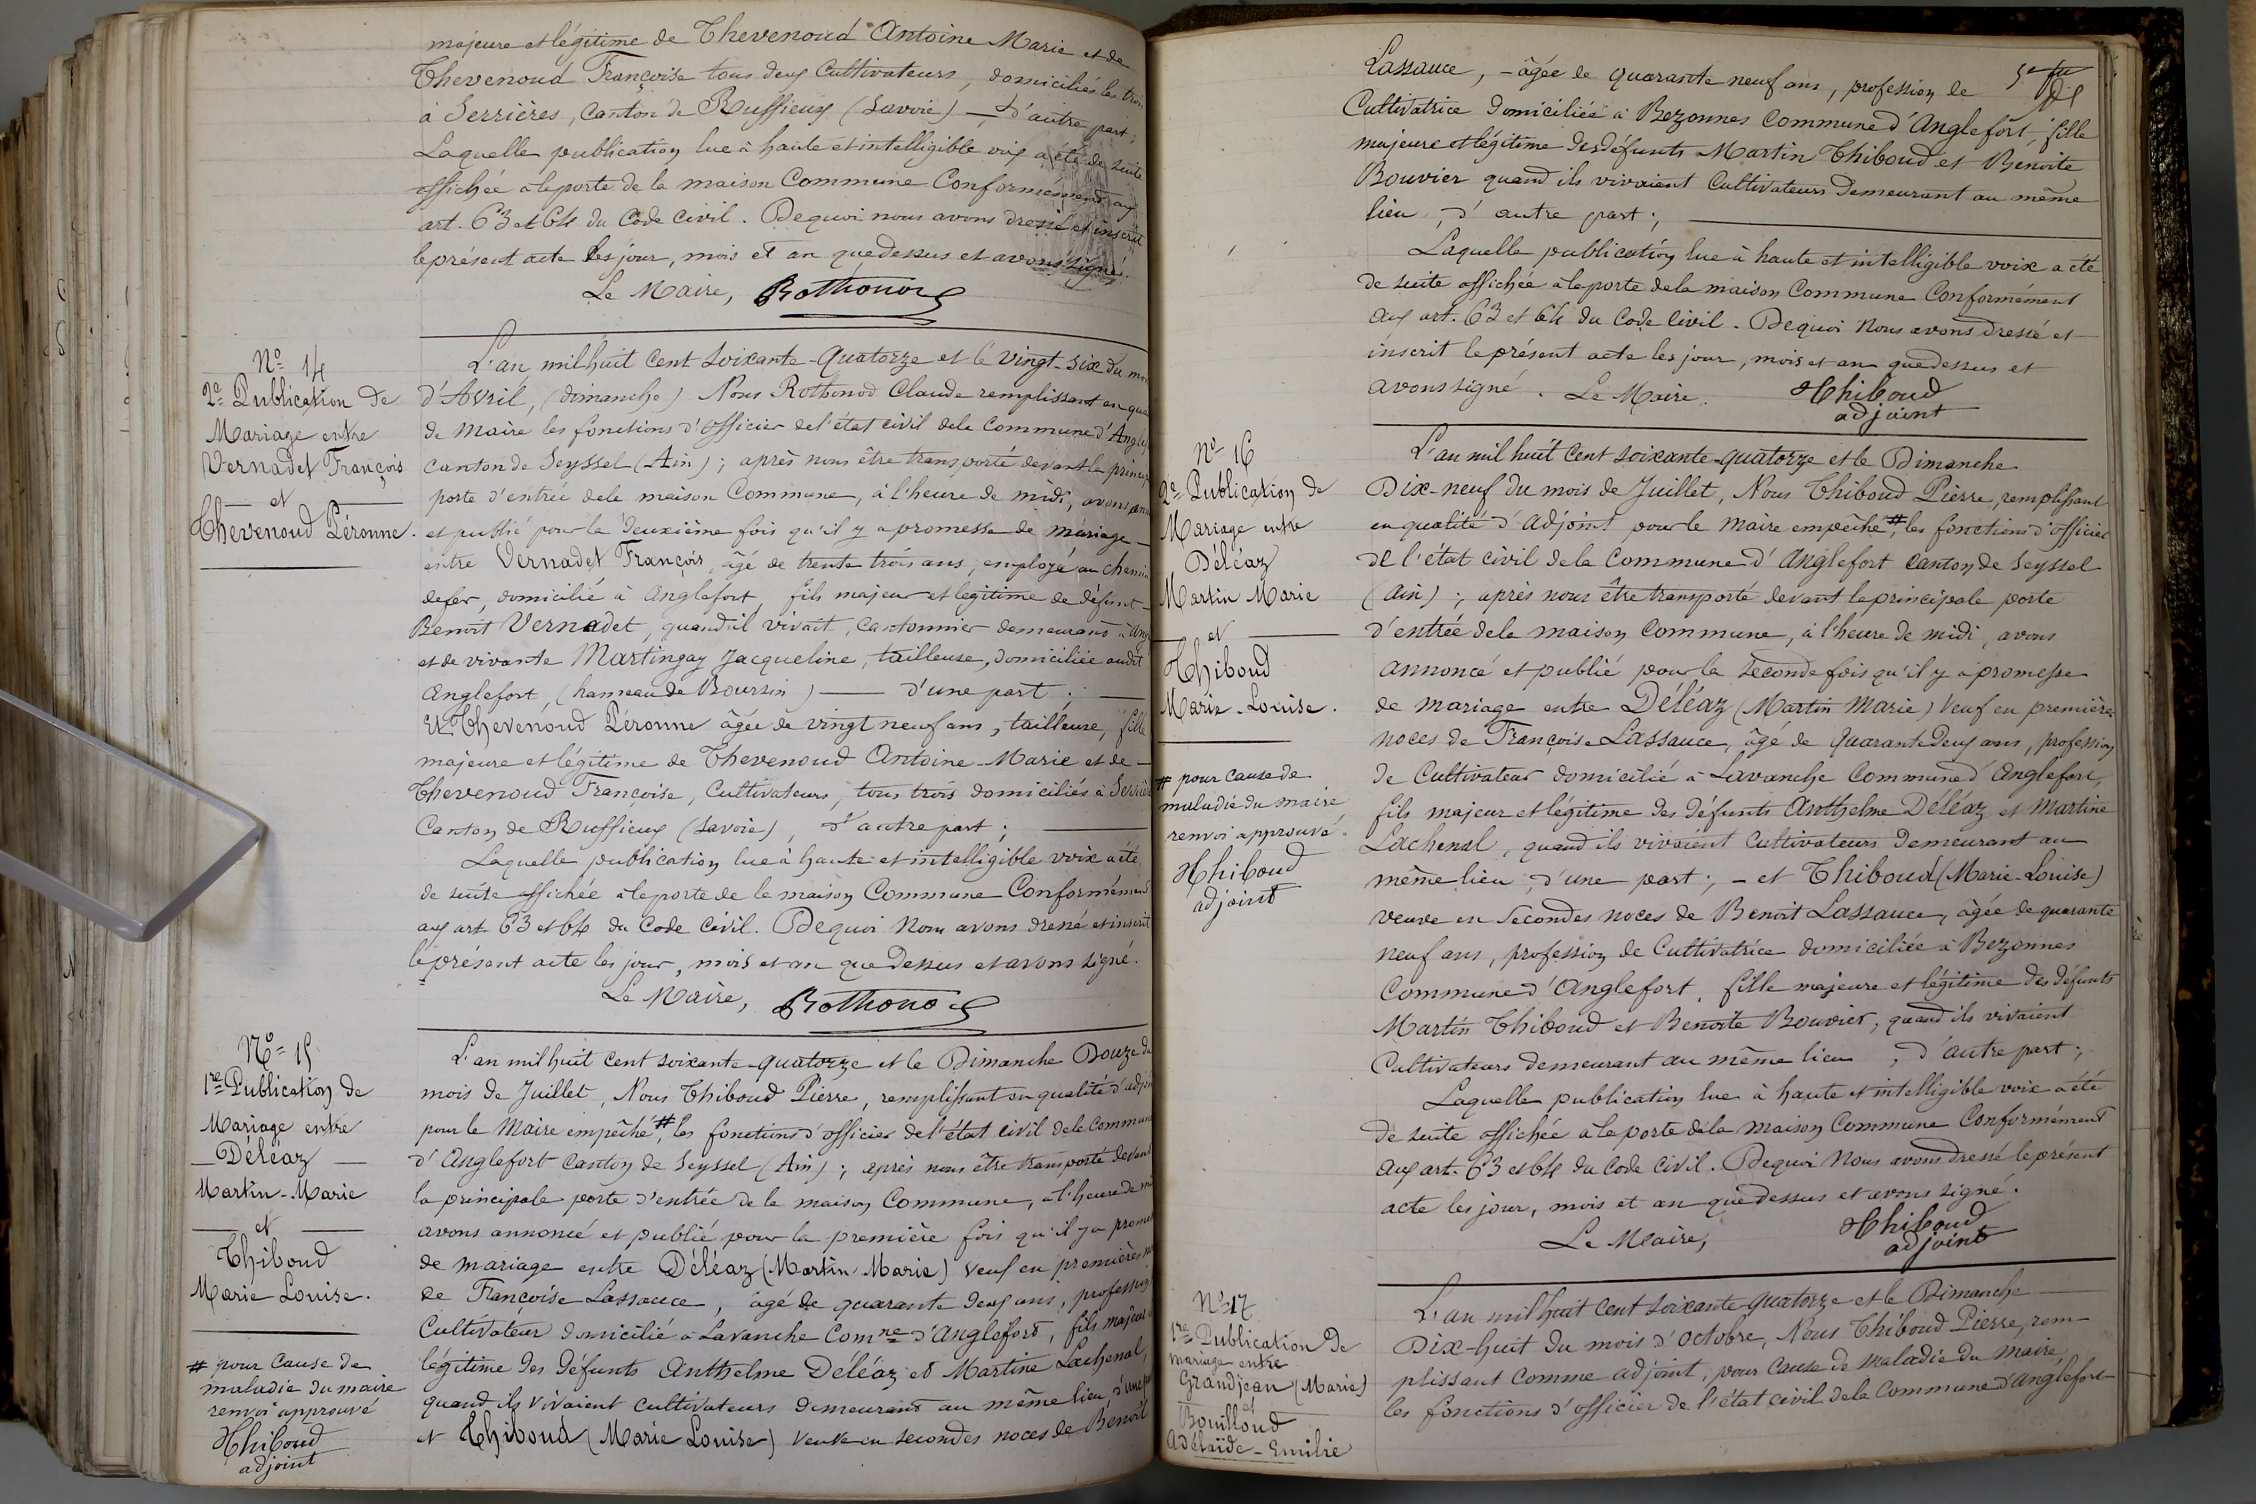 majeure et légitime de Thevenoud Antoine Marie et de
Thevenoud Françoise tous deux Cultivateurs, domiciliés les trois
à Serrières, Canton de Ruffieux (Savoie) — d'autre part;
Laquelle publication lue à haute et intelligible voix a été de suite
affichée à la porte de la maison Commune Conformément aux
art. 63 et 64 du Code Civil. De quoi nous avons dressé et inscrit
le présent acte les jour, mois et an que dessus et avons signé.
Le Maire, Rothonod
N° 14
2e Publication de
Mariage entre
Vernadet François
et
Thevenoud Péronne.
L'an mil huit cent soixante-quatorze et le vingt-six du mois
d'Avril, (dimanche) Nous Rothonod Claude remplissant en qua
de Maire les fonctions d'officier de l'état civil de la Commune d'Angle
canton de Seyssel (Ain); après nous être transporté devant la princi
porte d'entrée de la maison Commune, à l'heure de midi, avons
et publié pour la deuxième fois qu'il y a promesse de mariage —
entre Vernadet François, âgé de trente trois ans, employé au chemin
de fer, domicilié à Anglefort, fils majeur et légitime de défunt —
Benoît Vernadet, quand il vivait, cantonnier demeurant à Ang
et de vivante Martingay Jacqueline, tailleuse, domiciliée audit
Anglefort, (hameau de Boursin) — d'une part; —
Et Thevenoud Péronne âgée de vingt neuf ans, tailleuse, fille
majeure et légitime de Thevenoud Antoine-Marie et de —
Thevenoud Françoise, Cultivateurs, tous trois domiciliés à Serrièr
Canton de Ruffieux (Savoie), d'autre part; —
Laquelle publication lue à haute et intelligible voix a été
de suite affichée à la porte de la maison Commune Conformément
aux art. 63 et 64 du Code Civil. De quoi Nous avons dressé et inscrit
le présent acte les jour, mois et an que Dessus et avons signé.
Le Maire, Rothonod
N° 15
1re Publication de
Mariage entre
— Déléaz —
Martin-Marie
et
Thiboud
Marie Louise.
# pour cause de
maladie du maire
renvoi approuvé
Thiboud
adjoint
L'an mil huit cent soixante-quatorze et le Dimanche Douze du
mois de Juillet, Nous Thiboud Pierre, remplissant en qualité d'adjoi
pour le Maire empêché #, les fonctions d'officier de l'état civil de la Commune
d'Anglefort canton de Seyssel (Ain); après nous être transporté devant
la principale porte d'entrée de la maison Commune, à l'heure de mi
avons annoncé et publié pour la première fois qu'il y a prome
de mariage entre Déléaz (Martin Marie) veuf en premières no
de Françoise Lassauce, âgé de quarante deux ans, profession
Cultivateur domicilié à Lavanche Comne d'Anglefort, fils majeur
légitime des défunts Anthelme Déléaz et Martine Lachenal,
quand ils vivaient cultivateurs demeurant au même lieu d'une
et Thiboud (Marie Louise) veuve en secondes noces de Benoit
Lassauce, — âgée de quarante neuf ans, profession de
Cultivatrice domiciliée à Bezonnes Commune d'Anglefort, fille
majeure et légitime des défunts Martin Thiboud et Benoîte
Bouvier quand ils vivaient Cultivateurs demeurant au même
lieu, d'autre part; —
Laquelle publication lue à haute et intelligible voix a été
de suite affichée à la porte de la maison Commune Conformément
aux art. 63 et 64 du Code Civil. De quoi Nous avons dressé et
inscrit le présent acte les jour, mois et an que dessus et
avons signé. Le Maire. Thiboud
adjoint
N° 16
2e Publication de
Mariage entre
Déléaz
Martin Marie
et
Thiboud
Marie-Louise.
# pour cause de
maladie du maire
renvoi approuvé.
Thiboud
adjoint
L'an mil huit cent soixante-quatorze et le Dimanche
Dix-neuf du mois de Juillet, Nous Thiboud Pierre, remplissant
en qualité d'adjoint pour le maire empêché #, les fonctions d'officier
de l'état civil de la Commune d'Anglefort canton de Seyssel
(Ain); après nous être transporté devant la principale porte
d'entrée de la maison Commune, à l'heure de midi, avons
annoncé et publié pour la seconde fois qu'il y a promesse
de mariage entre Déléaz (Martin Marie) Veuf en premières
noces de Françoise Lassauce, âgé de quarante deux ans, profession
de Cultivateur domicilié à Lavanche Commune d'Anglefort,
fils majeur et légitime des défunts Anthelme Déléaz et Martine
Lachenal, quand ils vivaient Cultivateurs demeurant au
même lieu, d'une part; — et Thiboud (Marie-Louise)
veuve en Secondes noces de Benoit Lassauce, âgée de quarante
neuf ans, profession de Cultivatrice domiciliée à Bezonnes
Commune d'Anglefort, fille majeure et légitime des défunts
Martin Thiboud et Benoîte Bouvier, quand ils vivaient
Cultivateurs demeurant au même lieu; d'autre part;
Laquelle publication lue à haute et intelligible voix a été
de suite affichée à la porte de la maison Commune Conformément
aux art. 63 et 64 du Code Civil. De quoi Nous avons dressé le présent
acte les jour, mois et an que dessus et avons signé.
Le Maire, Thiboud
adjoint
N° 17
1re Publication de
mariage entre
Grandjean (Marie)
et
Bouilloud
Adélaïde-Emilie
L'an mil huit cent soixante quatorze et le Dimanche —
Dix-huit du mois d'octobre, Nous Thiboud Pierre, rem-
plissant comme adjoint, pour cause de maladie du maire,
les fonctions d'officier de l'état civil de la Commune d'Anglefort